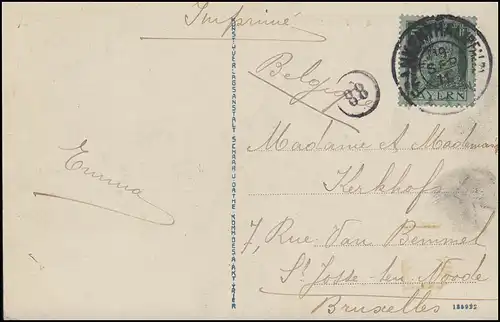 Imprimé
Belgique
88
BAYERN
Emma
Madame et Madem
Kerkhofs
7, Rue Van Bemmel
St. Josse-ten-Noode
Bruxelles
KUNST- U. VERLAGSANSTALT SCHAAR U. DATHE KOMM.-GES. A. AKT. TRIER